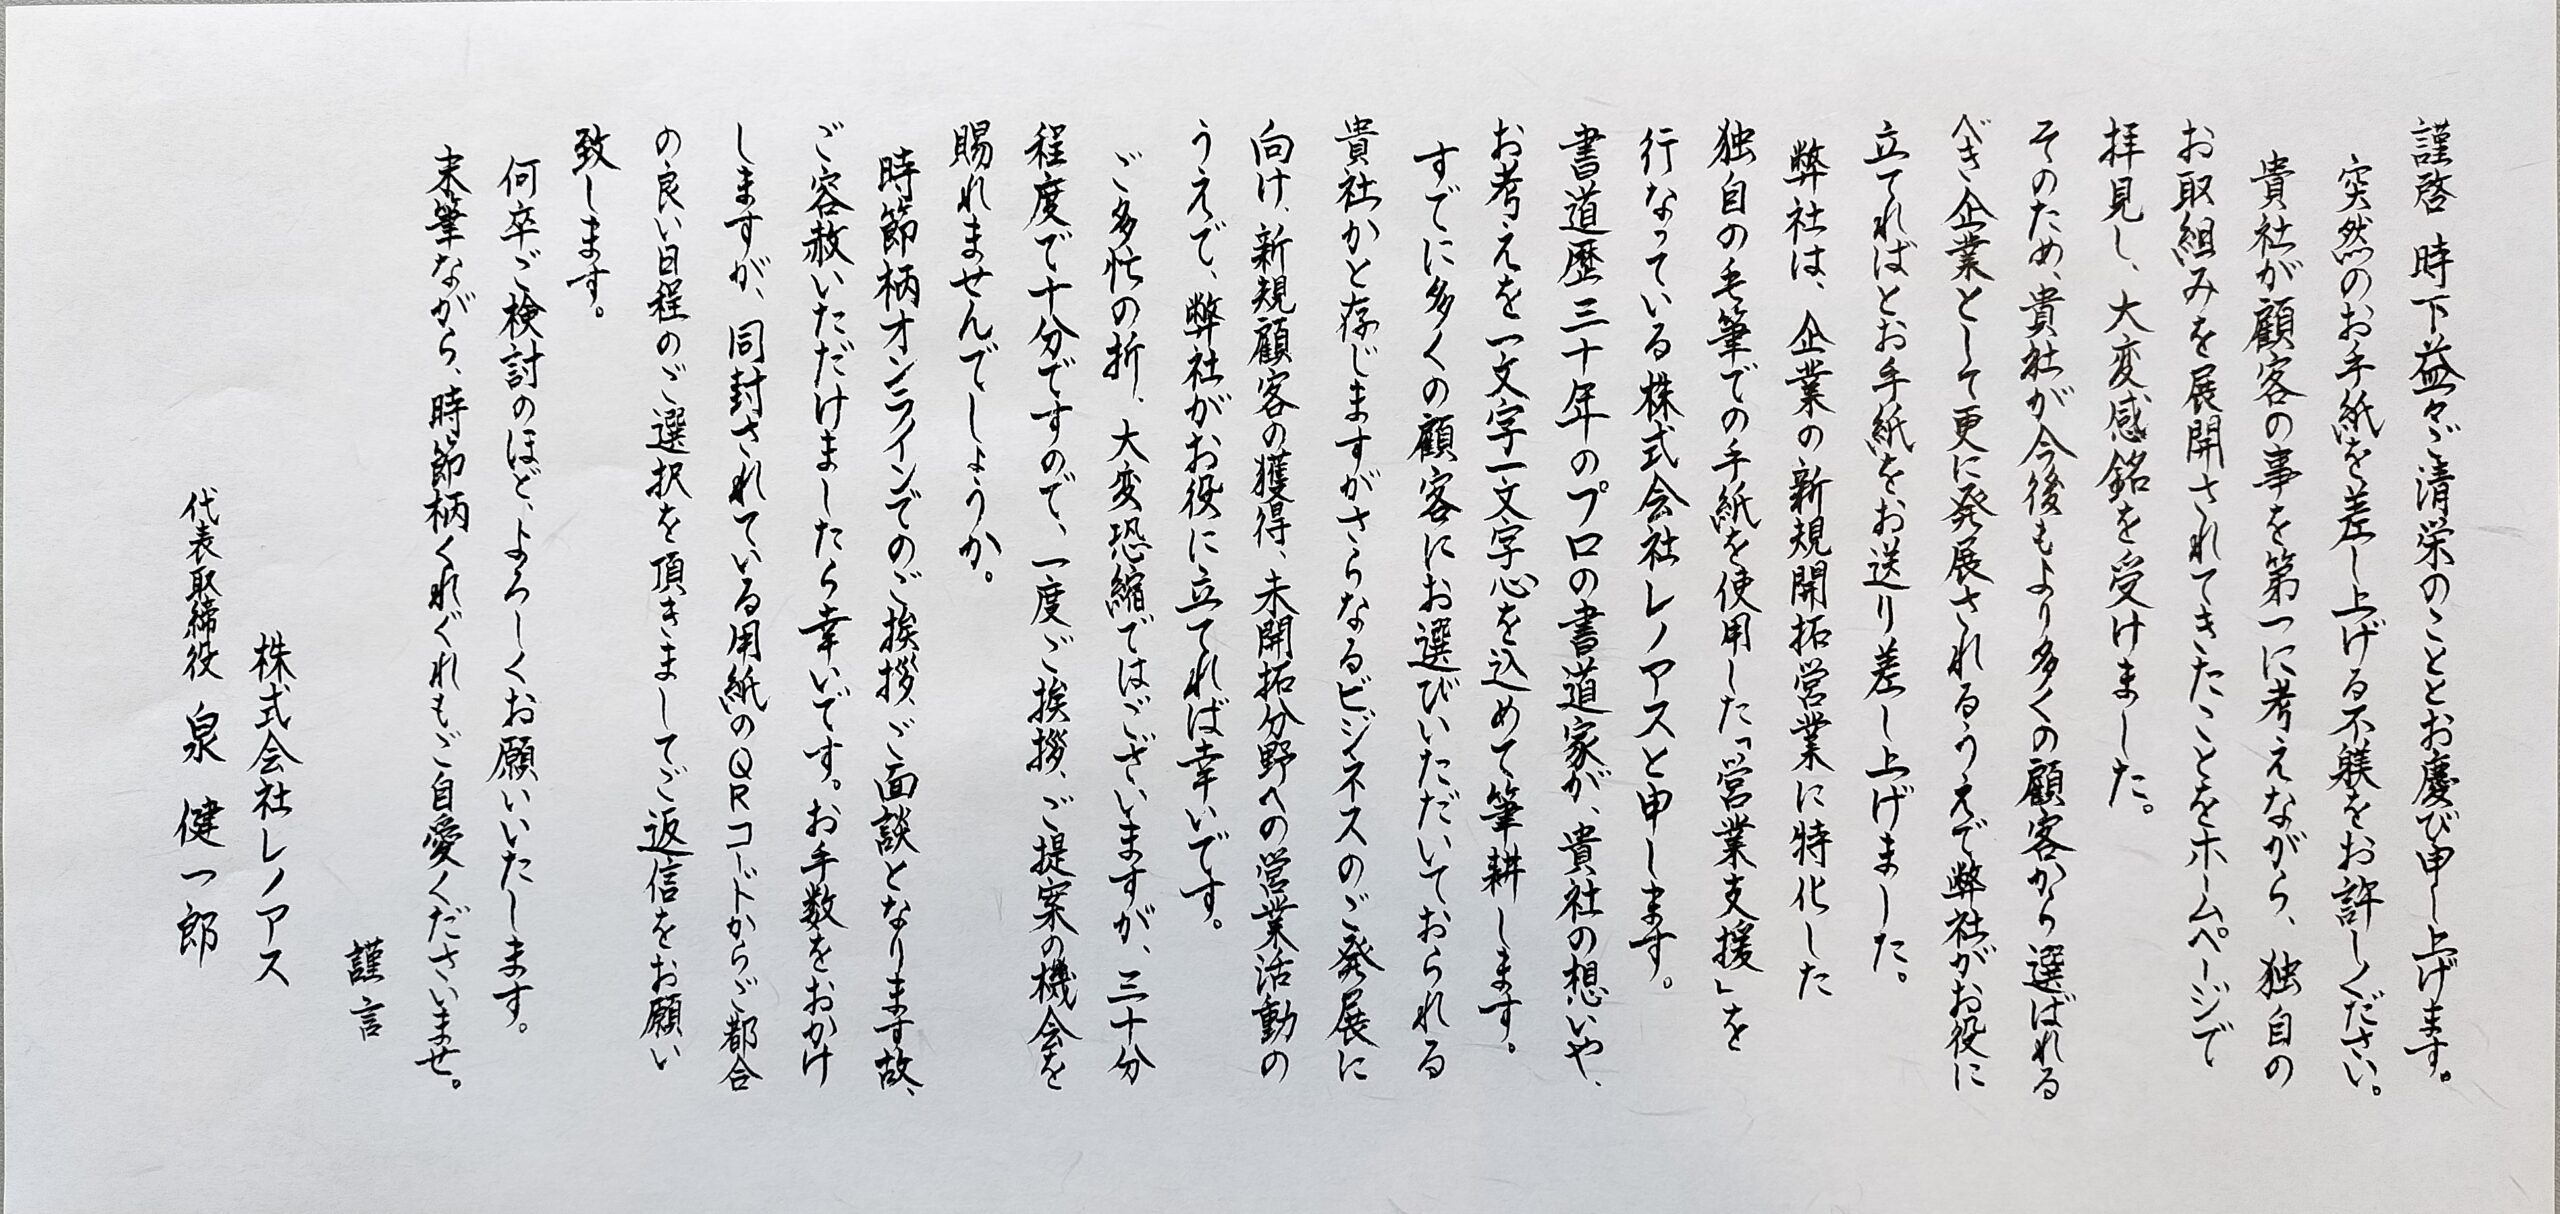 謹啓 時下益々ご清栄のこととお慶び申し上げます。
突然のお手紙を差し上げる不躾をお許しください。
貴社が顧客の事を第一に考えながら、独自の
お取組みを展開されてきたことをホームページで
拝見し、大変感銘を受けました。
そのため、貴社が今後もより多くの顧客から選ばれる
べき企業として更に発展されるうえで弊社がお役に
立てればとお手紙をお送り差し上げました。
弊社は、企業の新規開拓営業に特化した
独自の毛筆での手紙を使用した「営業支援」を
行なっている株式会社レノアスと申します。
書道歴三十年のプロの書道家が、貴社の想いや、
お考えを一文字一文字心を込めて筆耕します。
すでに多くの顧客にお選びいただいておられる
貴社かと存じますがさらなるビジネスのご発展に
向け、新規顧客の獲得、未開拓分野への営業活動の
うえで、弊社がお役に立てれば幸いです。
ご多忙の折、大変恐縮ではございますが、三十分
程度で十分ですので、一度ご挨拶、ご提案の機会を
賜れませんでしょうか。
時節柄オンラインでのご挨拶、ご面談となります故、
ご容赦いただけましたら幸いです。お手数をおかけ
しますが、同封されている用紙のQRコードからご都合
の良い日程のご選択を頂きましてご返信をお願い
致します。
何卒ご検討のほど、よろしくお願いいたします。
末筆ながら、時節柄くれぐれもご自愛くださいませ。
謹言
株式会社レノアス
代表取締役 泉 健一郎